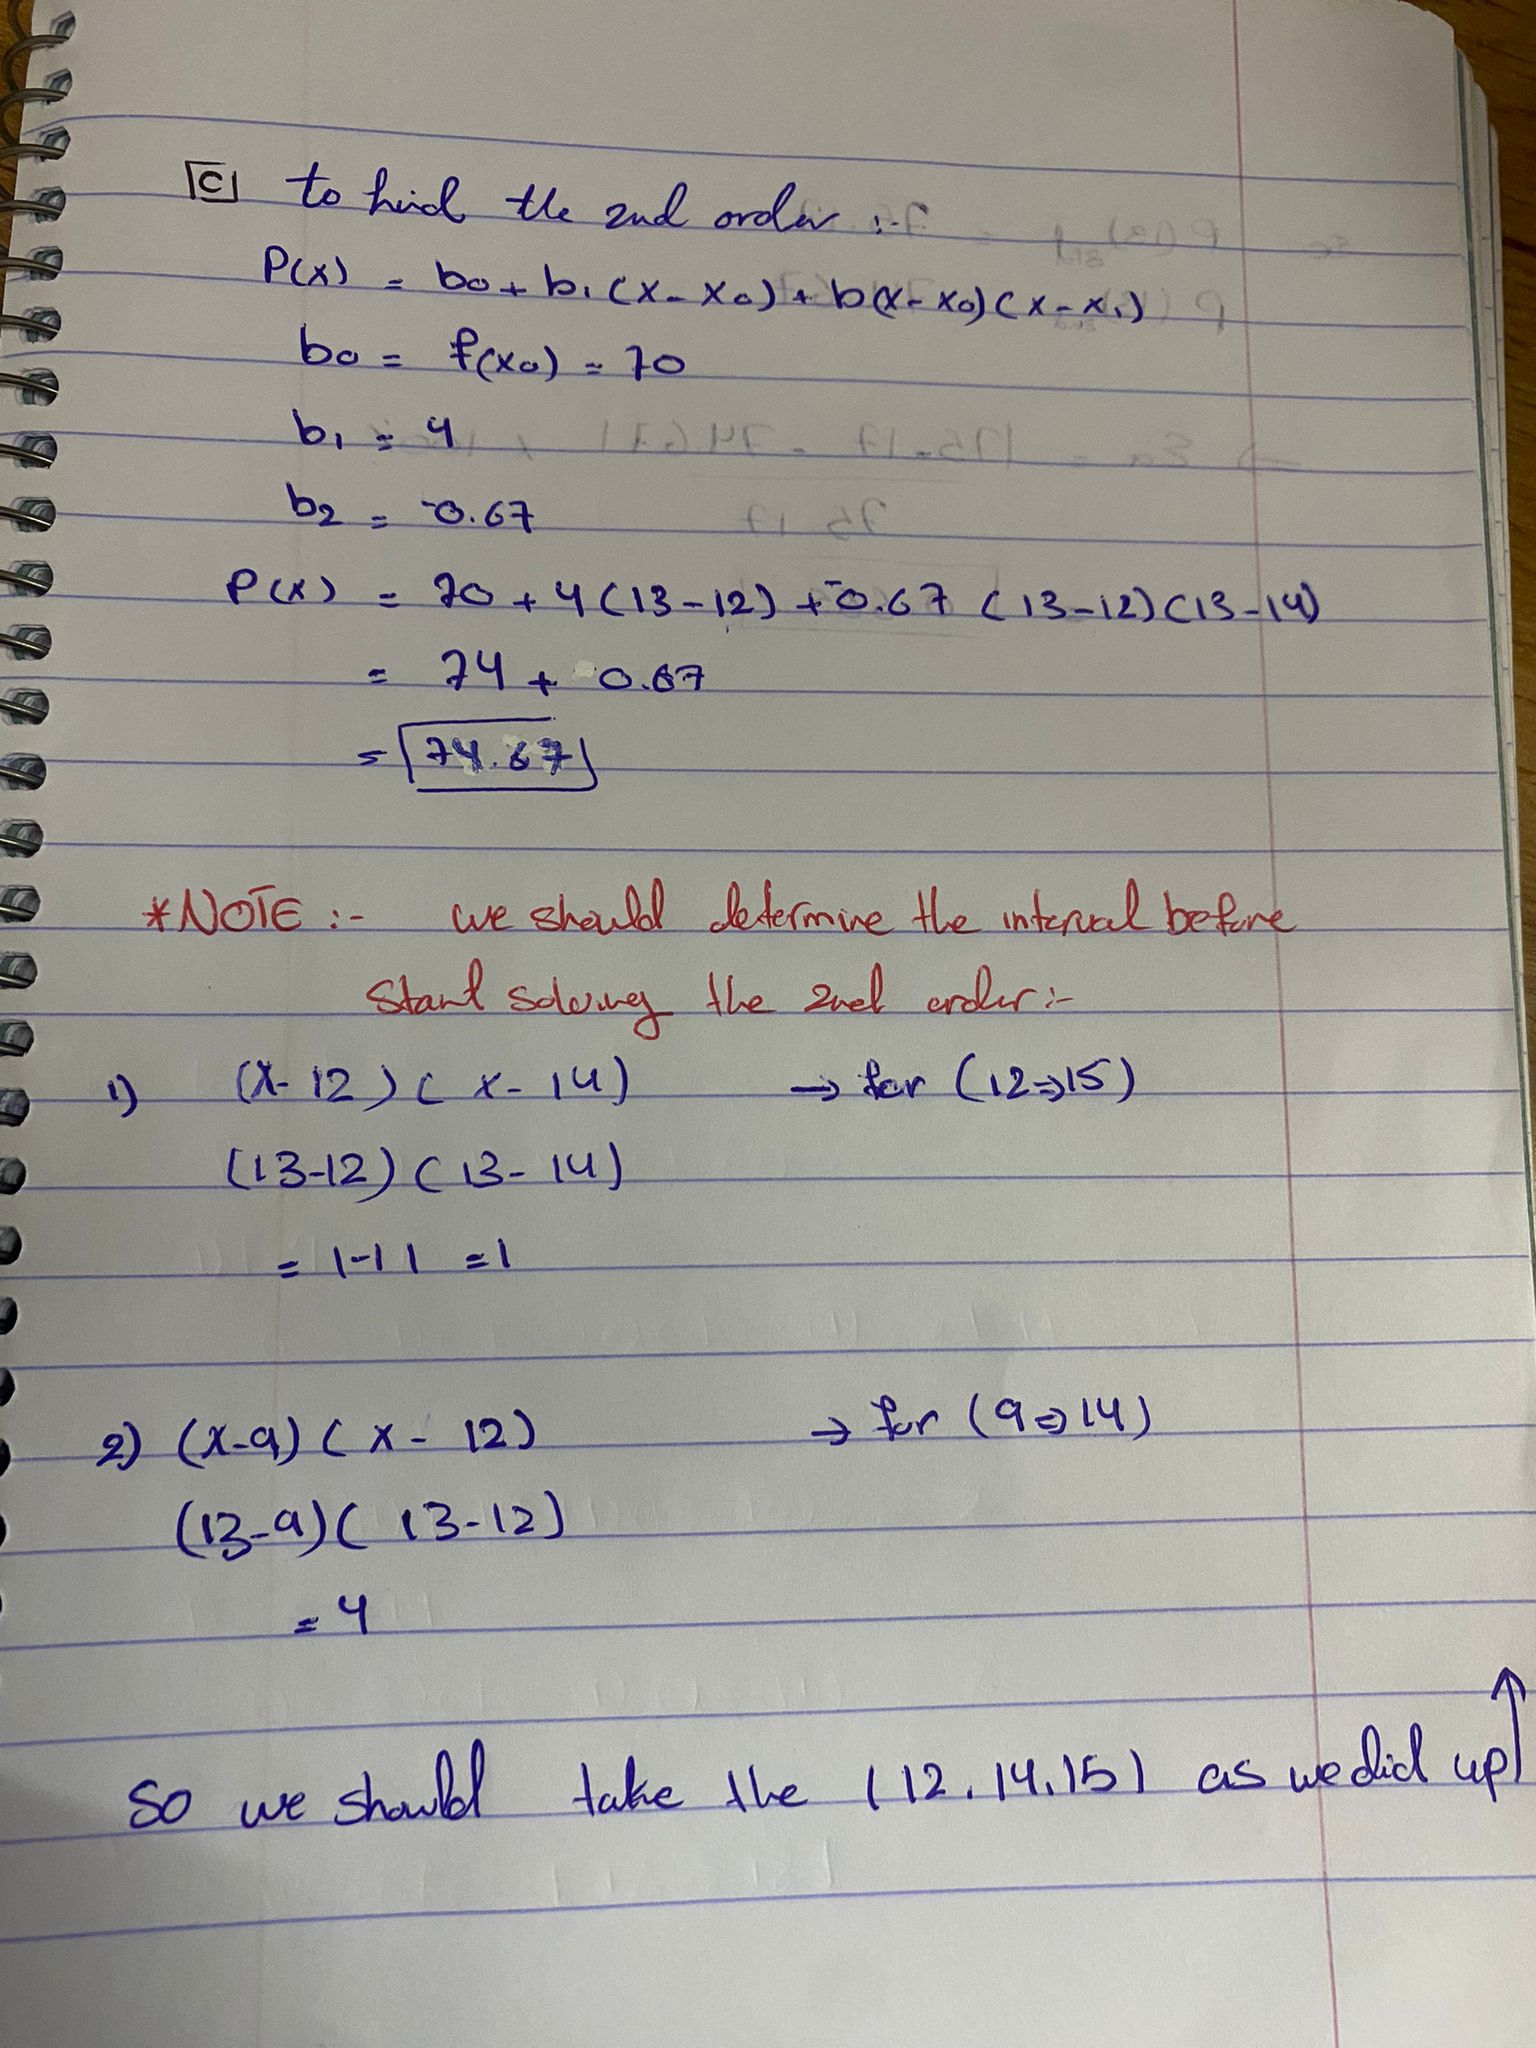 [C] to find the 2nd order :-
P(x) = b0 + b1 (x - x0) + b(x - x0)(x - x1)
b0 = f(x0) = 70
b1 = 4
b2 = -0.67
P(x) = 70 + 4(13-12) + -0.67 (13-12)(13-14)
= 74 + 0.67
= 74.67
*NOTE :- we should determine the interval before
start solving the 2nd order :-
1) (x-12)(x-14) → for (12⇒15)
(13-12)(13-14)
= |-1| = 1
2) (x-9)(x-12) → for (9⇒14)
(13-9)(13-12)
= 4
So we should take the (12,14,15) as we did up ↑